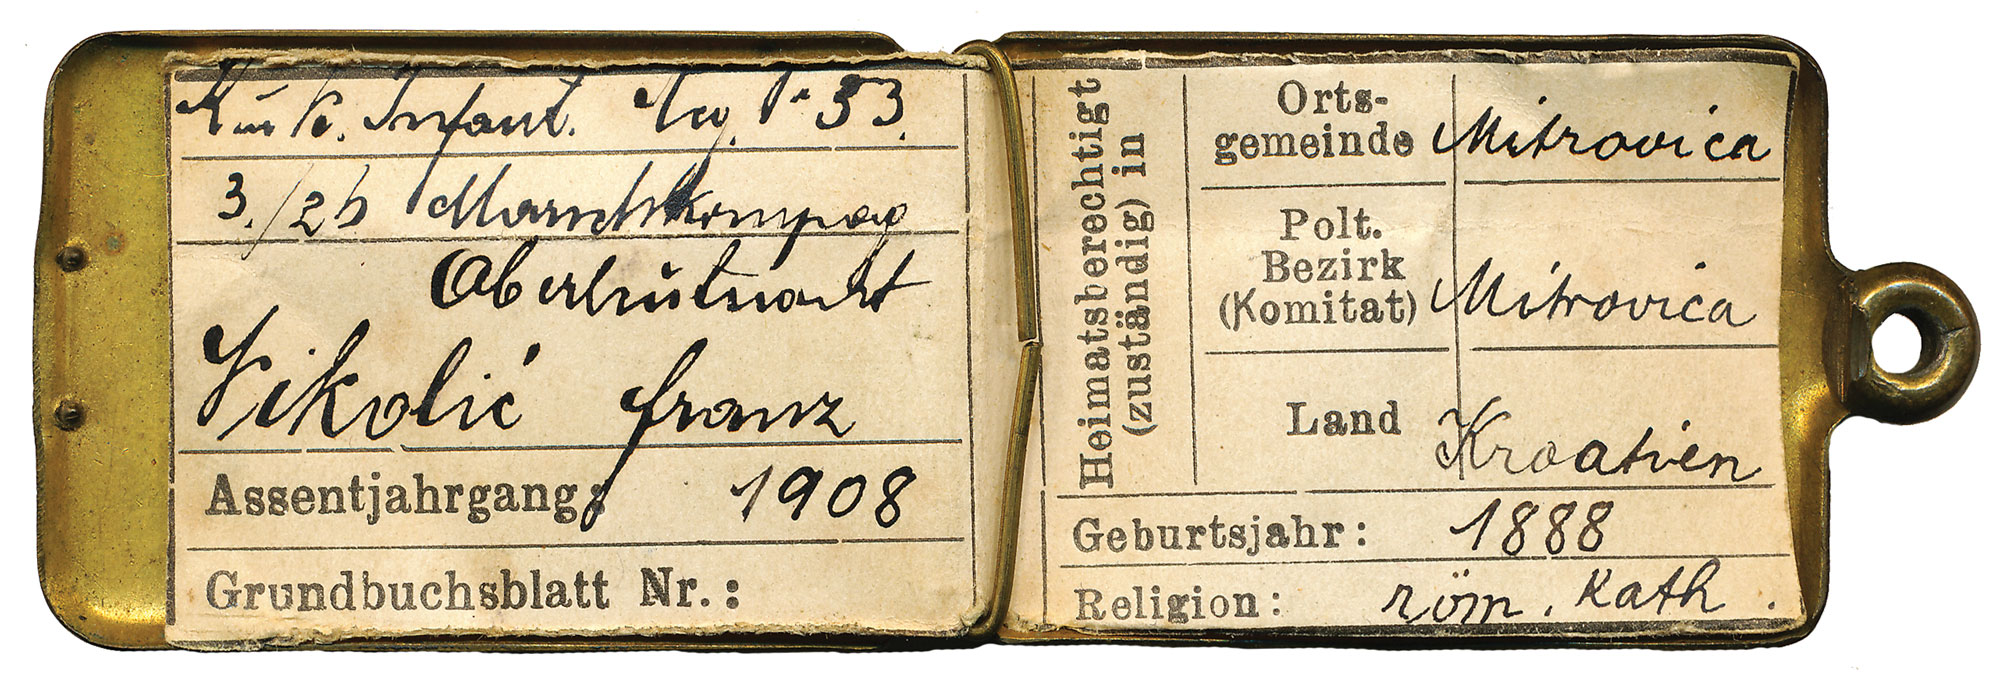 K. u. k. Infant. Reg. Nr 53.
3./26 Marschkompag
Oberleutnant
Nikolić Franz
Assentjahrgang: 1908
Grundbuchsblatt Nr.:
Heimatsberechtigt
(zuständig) in
Orts-
gemeinde Mitrovica
Polt.
Bezirk
(Komitat) Mitrovica
Land Kroatien
Geburtsjahr: 1888
Religion: röm. Kath.